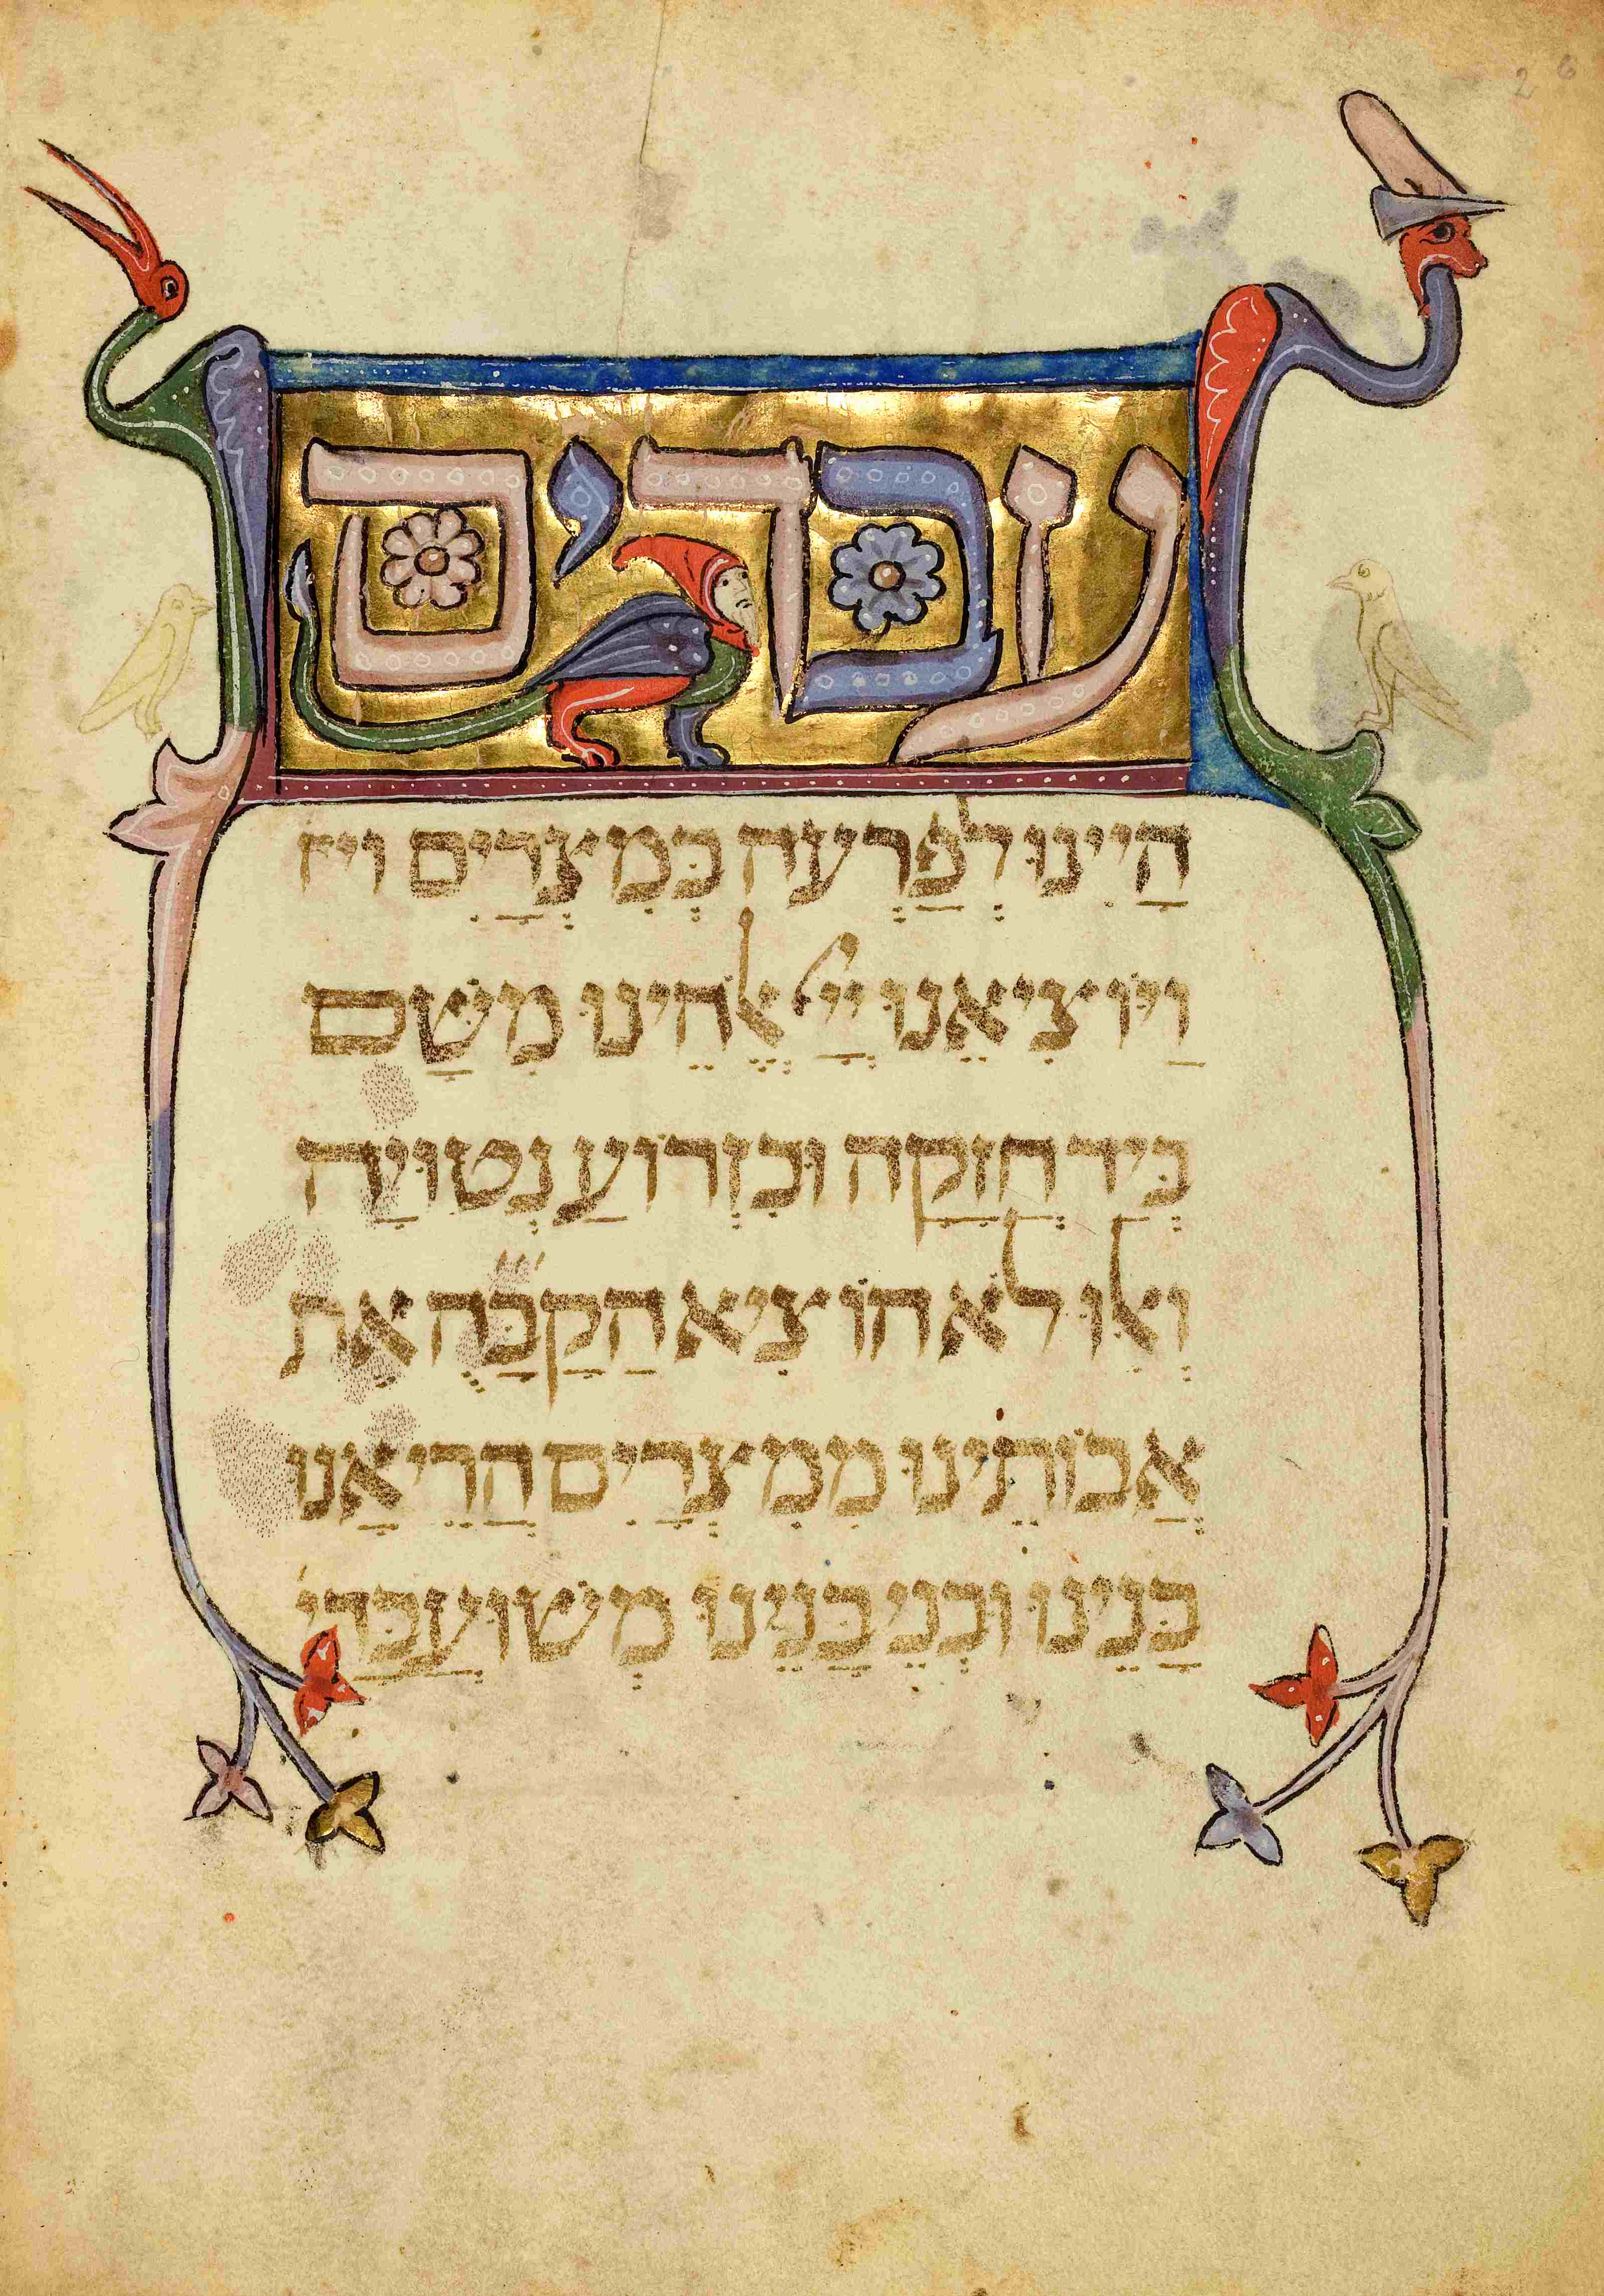 עבדים
הָיִינוּ לְפַרְעֹה בְּמִצְרַיִם ויו
וַיּוֹצִיאֵנוּ יְיָ אֱלֹהֵינוּ מִשָּׁם
בְּיָד חֲזָקָה וּבִזְרוֹעַ נְטוּיָה
וְאִלּוּ לֹא הוֹצִיא הַקָּבָּהֻ אֶת
אֲבוֹתֵינוּ מִמִּצְרַיִם הֲרֵי אָנוּ
בָּנֵינוּ וּבְנֵי בָּנֵינוּ מְשׁוּעְבָּדִי